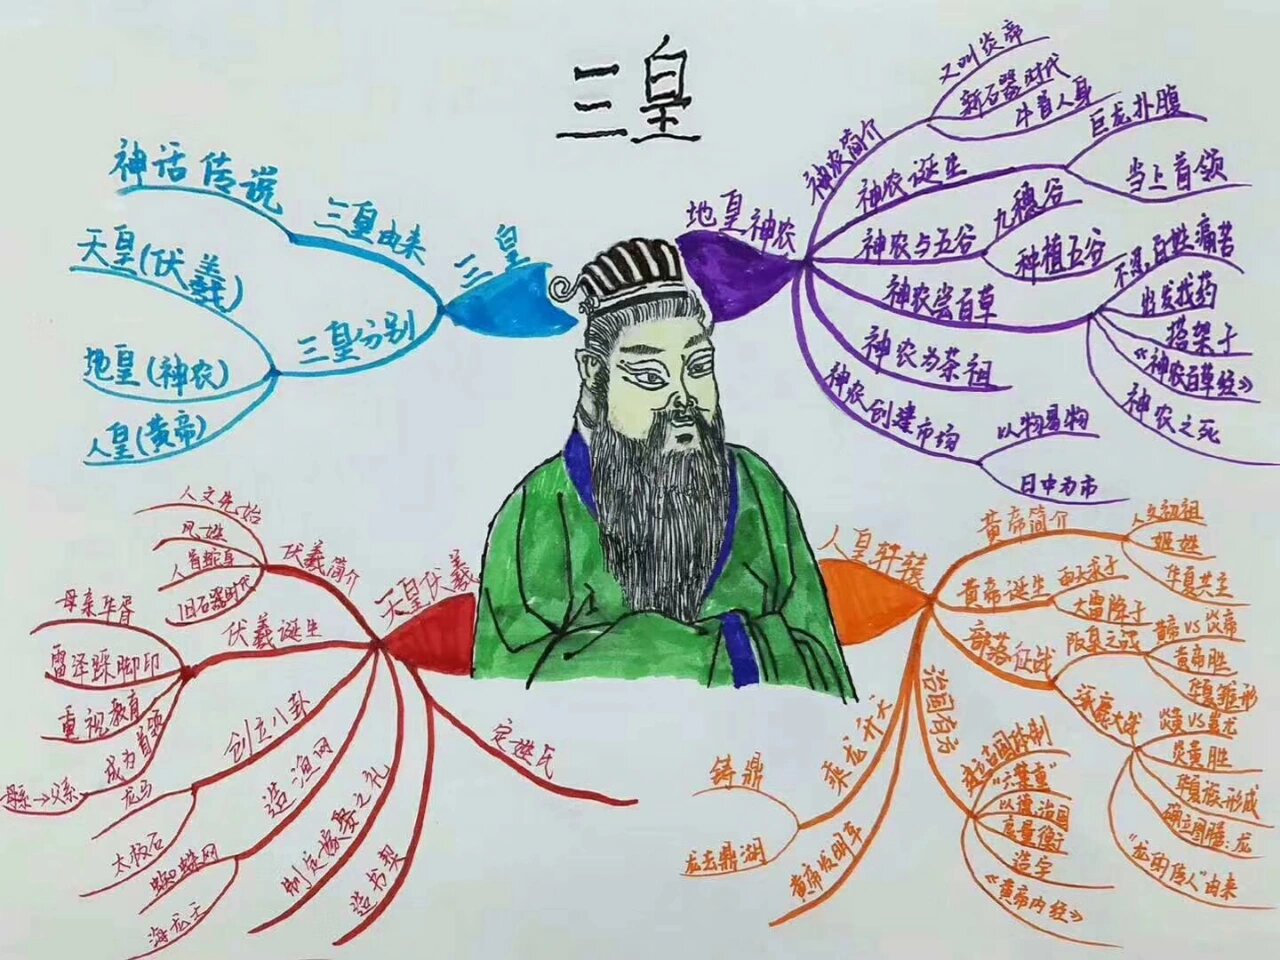 三皇
三皇
三皇由来
神话传说
三皇分别
天皇(伏羲)
地皇(神农)
人皇(黄帝)
地皇神农
神农简介
又叫炎帝
新石器时代
牛首人身
神农诞生
巨龙扑腹
当上首领
神农与五谷
九穗谷
种植五谷
神农尝百草
不忍百姓痛苦
出发找药
搭架子
《神农百草经》
神农之死
神农为茶祖
神农创建市场
以物易物
日中为市
人皇轩辕
黄帝简介
人文初祖
姬姓
华夏共主
黄帝诞生
大雷降子
部落征战
阪泉之战
黄帝VS炎帝
黄帝胜
华夏雏形
涿鹿大战
炎黄VS蚩尤
炎黄胜
华夏族形成
确立图腾:龙
"龙的传人"由来
治国有方
建立古国体制
"六禁重"
以德治国
度量衡
造字
《黄帝内经》
黄帝发明车
乘龙升天
铸鼎
龙去鼎湖
天皇伏羲
伏羲简介
人文先始
风姓
人首蛇身
旧石器时代
伏羲诞生
母亲华胥
雷泽踩脚印
重视教育
成为首领
母系→父系
创立八卦
龙马
太极石
造渔网
蜘蛛网
海龙王
制定嫁娶之礼
造书契
定姓氏